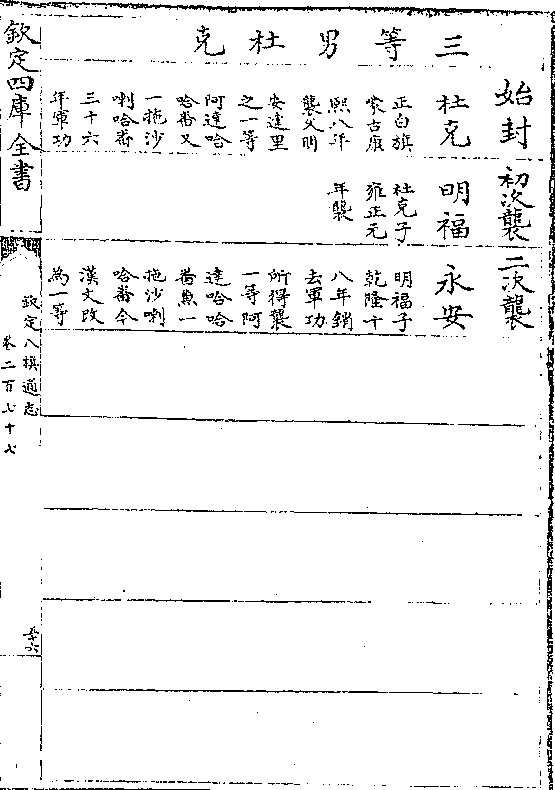 三等男杜克
始封
杜克
正白旗
蒙古康
熙八年
襲父明
安達里
之一等
阿達哈
哈番又
一拖沙
喇哈番
三十六
年軍功
初次襲
明福
杜克子
雍正元
年襲
二次襲
永安
明福子
乾隆十
八年銷
去軍功
所得襲
一等阿
達哈哈
番兼一
拖沙喇
哈番今
漢文改
為一等
欽定四庫全書
欽定八旗通志
卷二百七十七